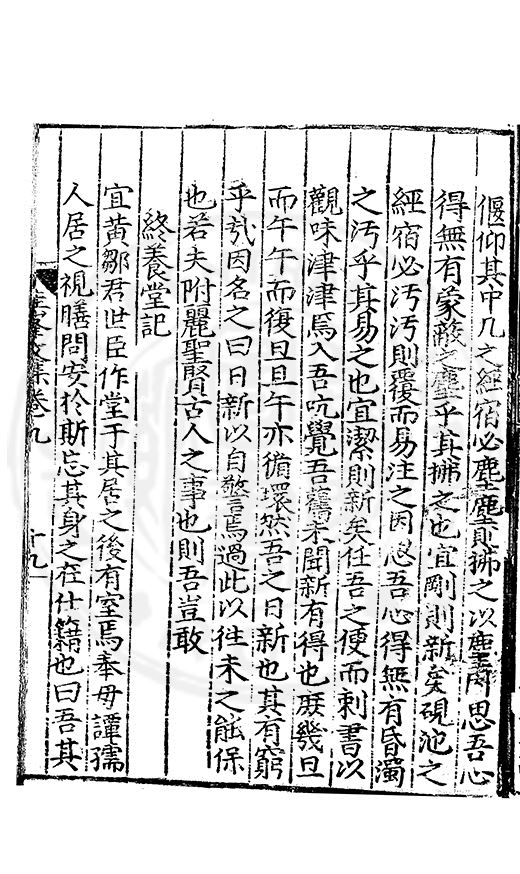 偃仰其中几之經宿必塵塵則拂之以塵思吾心
得無有蒙蔽之塵乎其拂之也宜剛則新矣硯池之
經宿必汚汚則覆而易注之因思吾心得無有昏濁
之汚乎其易之也宜潔則新矣任吾之便而刺書以
觀味津津焉入吾吭覺吾舊未聞新有得也庶幾旦
而午午而復旦旦午亦循環然吾之日新也其有窮
乎哉因名之曰日新以自警焉過此以徃未之能保
也若夫附麗聖賢古人之事也則吾豈敢
終養堂記
宜黄鄒君世臣作堂于其居之後有室焉奉母譚孺
人居之視膳問安於斯忘其身之在仕籍也曰吾其
文集卷九
十九